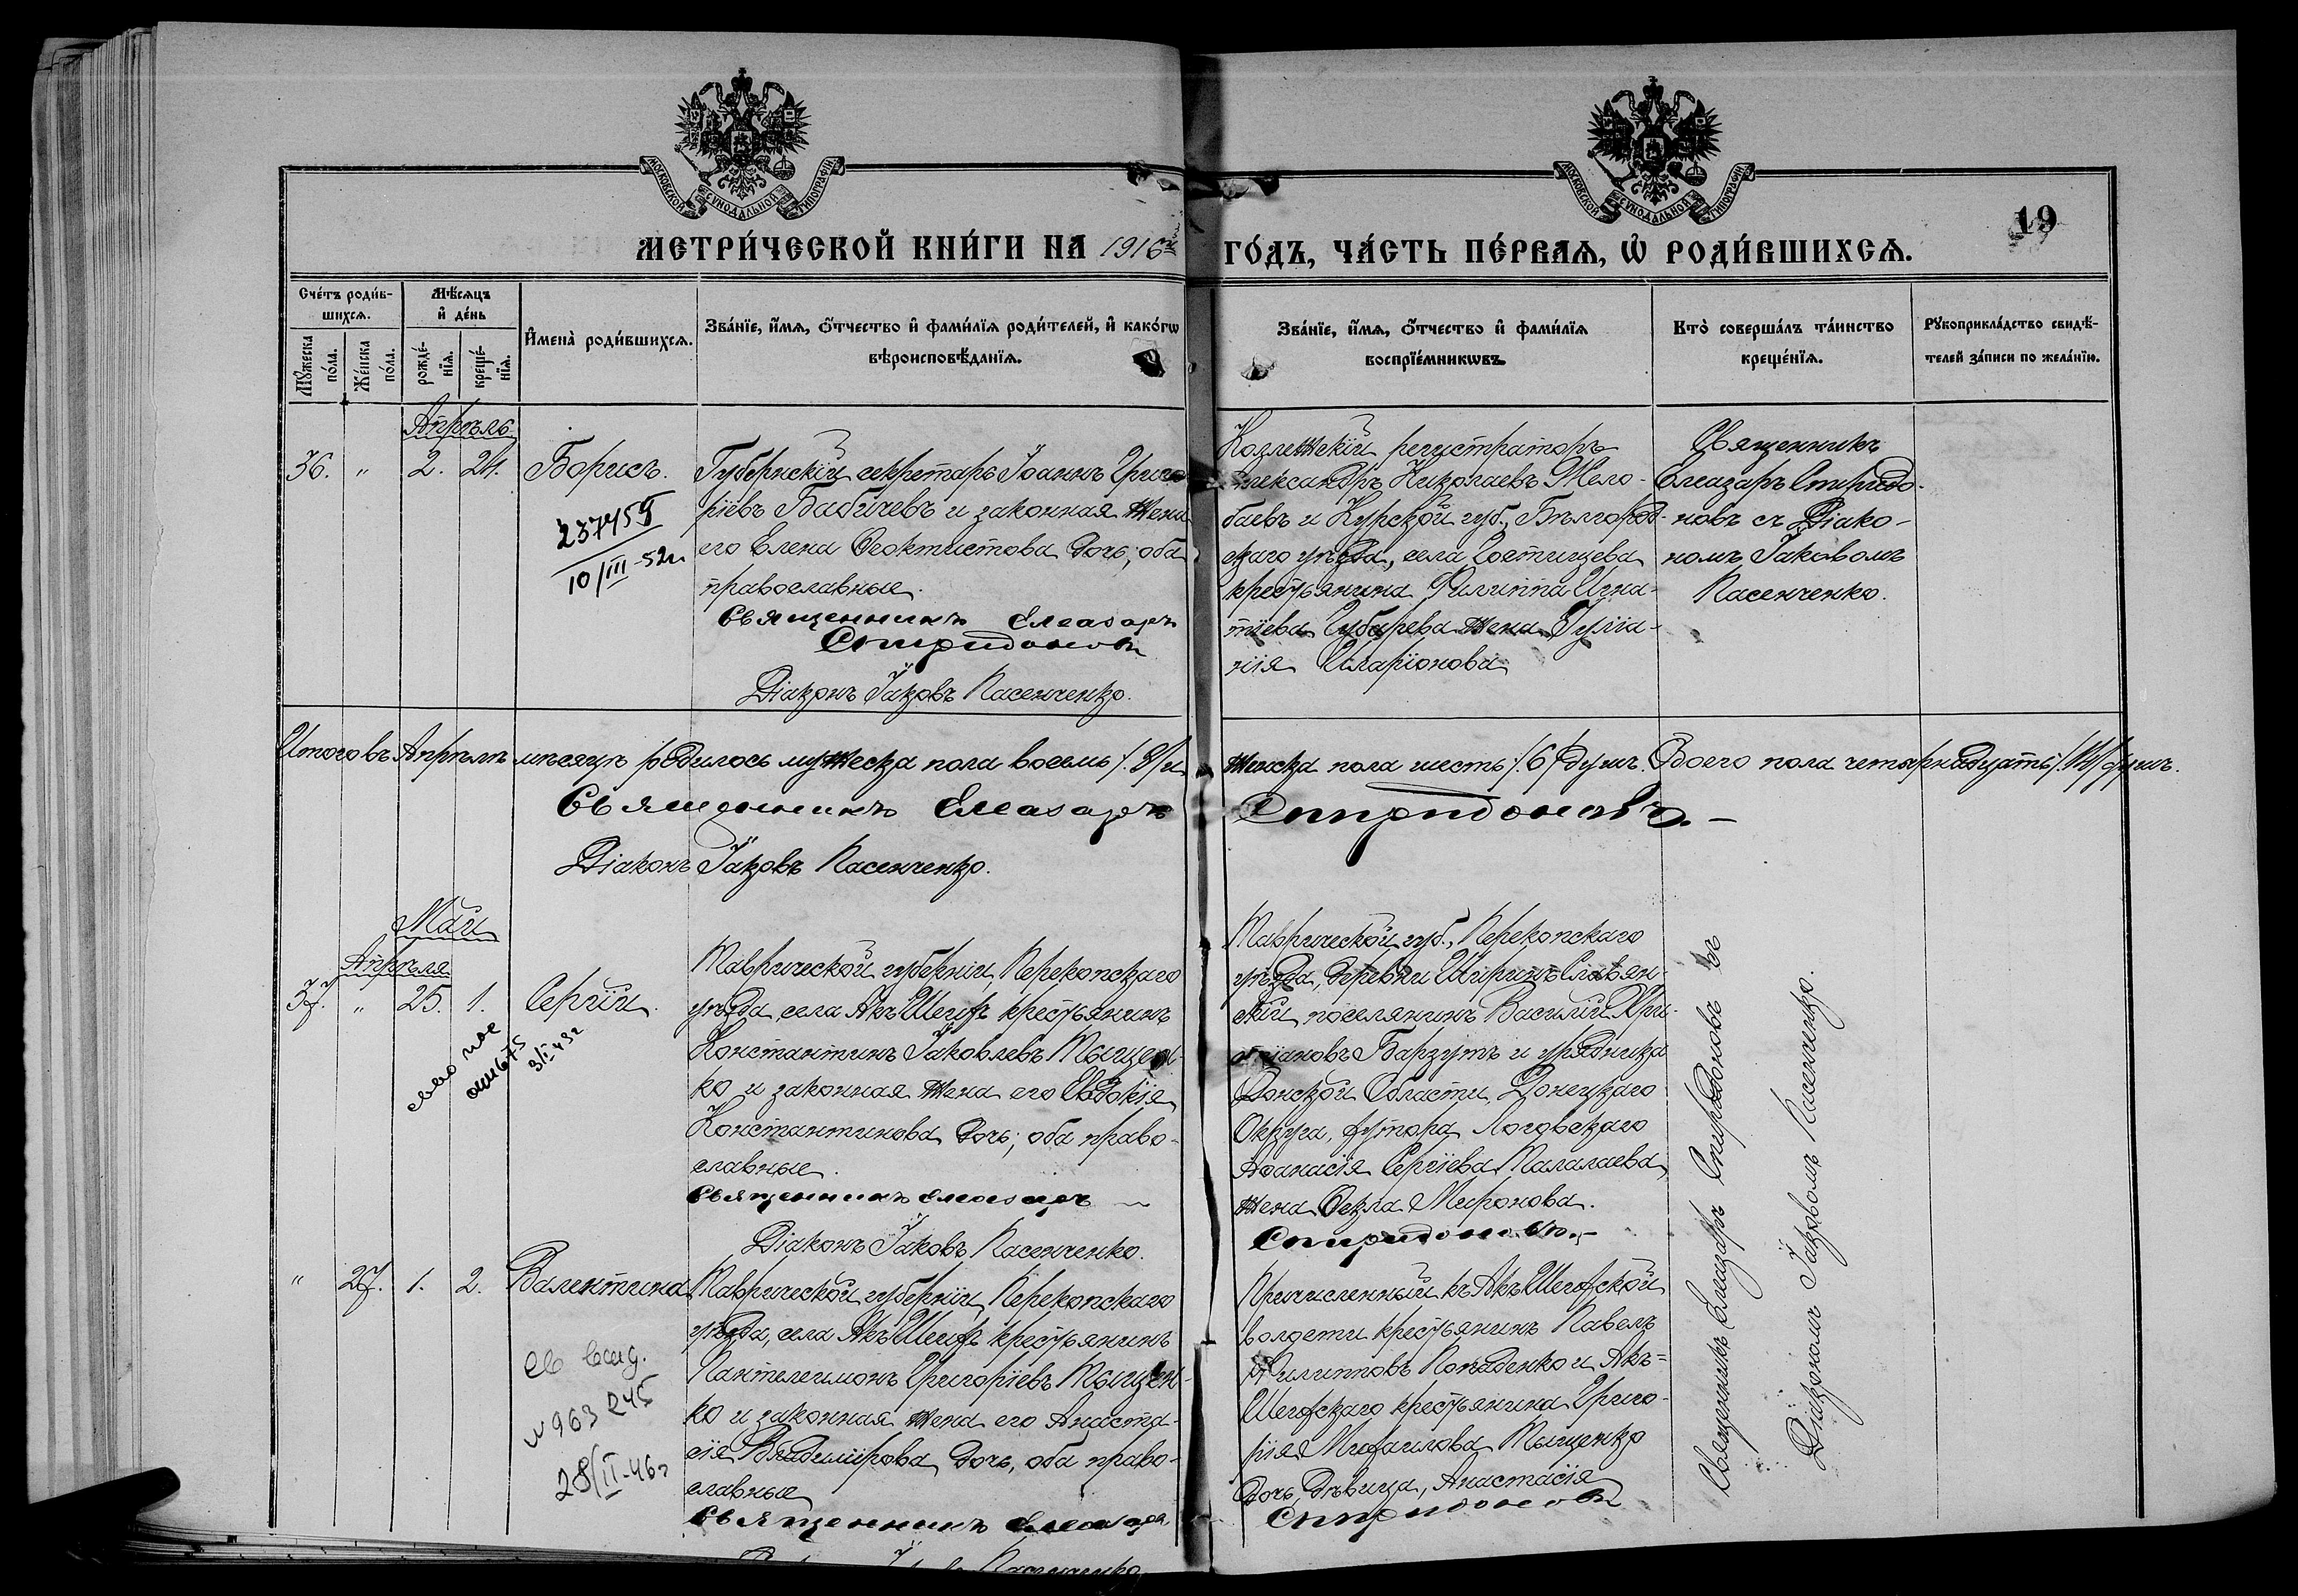 МОСКОВСКОЙ СѴНОДАЛЬНОЙ ТИПОГРАФІИ
МОСКОВСКОЙ СѴНОДАЛЬНОЙ ТИПОГРАФІИ
19
МЕТРИ́ЧЕСКОЙ КНИ́ГИ НА 1916й
ГО́ДЪ, ЧА́СТЬ ПЕ́РВАѦ, Ѡ҆ РОДИ́ВШИХСѦ.
Сче́тъ роди́в-
шихсѧ.
Мꙋ́жеска по́ла.
Же́нска по́ла.
Мѣ́сѧцъ
и҆ де́нь
рожде́-
нїѧ.
креще́-
нїѧ.
И҆мена̀ роди́вшихсѧ.
Зва́нїе, и҆́мѧ, ѻ҆́тчество и҆ фами́лїѧ роди́телей, и҆ како́гѡ
вѣроисповѣ́данїѧ.
Зва́нїе, и҆́мѧ, ѻ҆́тчество и҆ фами́лїѧ
воспрїе́мникѡвъ.
Кто̀ соверша́лъ та́инство
креще́нїѧ.
Рꙋкоприкла́дство свидѣ́-
телей за́писи по жела́нїю.
Апрѣль
36. " 2. 24. Борисъ.
237459
10/III-52г.
Губернскій секретарь Іоаннъ Григо-
ріевъ Бабичевъ и законная жена
его Елена Ѳеоктистова дочь; оба
православные.
Священникъ Елеазаръ
Спиридоновъ
Діаконъ Іаковъ Пасенченко.
Коллежскій регистраторъ
Александръ Николаевъ Жело-
баевъ и Курской губ., Бѣлгород-
скаго уѣзда, села Гостищева
крестьянина Филиппа Игна-
тіева Губарева жена Іуліа-
нія Иларіонова
Священникъ
Елеазаръ Спиридо-
новъ съ Діако-
номъ Іаковомъ
Пасенченко.
Итого въ Апрѣлѣ мѣсяцѣ родилось мужеска пола восемь /8/ и
женска пола шесть /6/ душъ. Обоего пола четырнадцать /14/ душъ.
Священникъ Елеазаръ
Спиридоновъ.
Діаконъ Іаковъ Пасенченко.
Май
Апрѣля
37. " 25. 1. Сергій.
3/I-43г
Таврической губерніи, Перекопскаго
уѣзда села Акъ Шеихъ крестьянинъ
Константинъ Іаковлевъ Тыщен-
ко и законная жена его Евдокія
Константинова дочь; оба право-
славные.
Священникъ Елеазаръ
Діаконъ Іаковъ Пасенченко.
Таврической губ., Перекопскаго
уѣзда, деревни Ширинъ Славян-
скій поселянинъ Василій Хри-
стіановъ Барзутъ и урядника
Донской Области, Донецкаго
Округа, хутора Логовскаго
Аѳанасія Сергіева Палалаева,
жена Ѳекла Миронова.
Спиридоновъ.
Священникъ Елеазаръ Спиридоновъ съ
Діакономъ Іаковомъ Пасенченко.
" 27. 1. 2. Валентина
св выд.
N963245
28/II-46г
Таврической губерніи, Перекопскаго
уѣзда, села Акъ Шеихъ крестьянинъ
Пантелеимонъ Григоріевъ Тыщен-
ко и законная жена его Анаста-
сія Владимірова дочь, оба право-
славные
Священникъ Елеазаръ
Причисленный къ Акъ Шеихской
волости крестьянинъ Павелъ
Филипповъ Попаденко и Акъ-
Шеихскаго крестьянина Григо-
рія Михаилова Тыщенко
дочь, дѣвица, Анастасія
Спиридоновъ